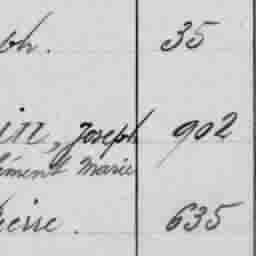 ph. 35
in, Joseph 902
lément Marie
ierre. 635